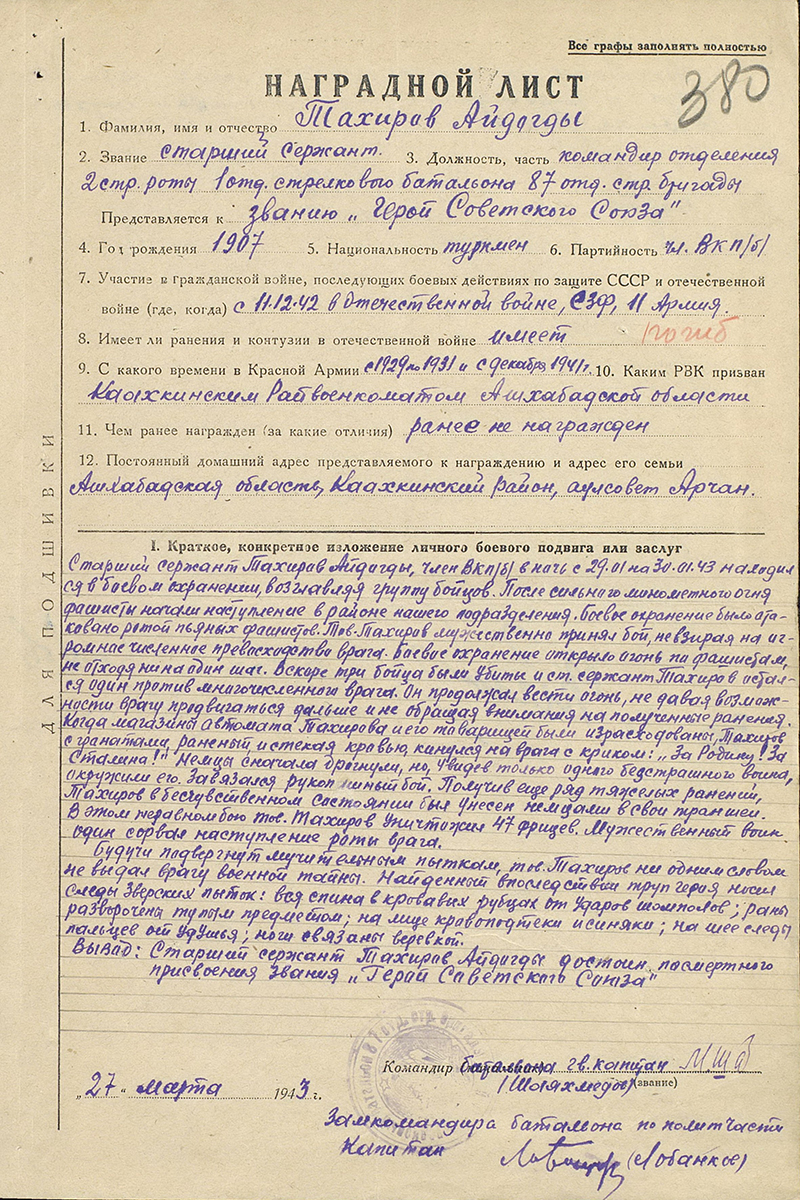 Все графы заполнять полностью
НАГРАДНОЙ ЛИСТ
380
1. Фамилия, имя и отчество Тахиров Айдогды
2. Звание старший сержант. 3. Должность, часть командир отделения
2 стр. роты 1 отд. стрелкового батальона 87 отд. стр. бригады
Представляется к званию „Герой Советского Союза"
4. Год рождения 1907 5. Национальность туркмен 6. Партийность чл. ВКП/б/
7. Участие в гражданской войне, последующих боевых действиях по защите СССР и отечественной
войне (где, когда) с 11.12.42 в Отечественной войне, СЗФ, 11 Армия.
8. Имеет ли ранения и контузии в отечественной войне имеет погиб
9. С какого времени в Красной Армии с 1929 по 1931 и с декабря 1941 г. 10. Каким РВК призван
Каахкинским Райвоенкоматом Ашхабадской области
11. Чем ранее награжден (за какие отличия) ранее не награжден
12. Постоянный домашний адрес представляемого к награждению и адрес его семьи
Ашхабадская область, Каахкинский район, аулсовет Арчан.
ДЛЯ ПОДШИВКИ
I. Краткое, конкретное изложение личного боевого подвига или заслуг
Старший сержант Тахиров Айдогды, член ВКП/б/ в ночь с 29.01 на 30.01.43 находил
ся в боевом охранении, возглавляя группу бойцов. После сильного минометного огня
фашисты начали наступление в районе нашего подразделения. Боевое охранение было ата-
ковано ротой пьяных фашистов. Тов. Тахиров мужественно принял бой, невзирая на ог-
ромное численное превосходство врага. Боевое охранение открыло огонь по фашистам,
не отходя ни на один шаг. Вскоре три бойца были убиты и ст. сержант Тахиров остал-
ся один против многочисленного врага. Он продолжал вести огонь, не давая возмож-
ности врагу продвигаться дальше и не обращая внимания на полученные ранения.
Когда магазины автомата Тахирова и его товарищей были израсходованы, Тахиров
с гранатами, раненый, истекая кровью, кинулся на врага с криком: „За Родину! За
Сталина!" Немцы сначала дрогнули, но, увидев только одного бесстрашного воина,
окружили его. Завязался рукопашный бой. Получив еще ряд тяжелых ранений,
Тахиров в бесчувственном состоянии был унесен немцами в свои траншеи.
В этом неравном бою тов. Тахиров уничтожил 47 фрицев. Мужественный воин
один сорвал наступление роты врага.
Будучи подвергнут мучительным пыткам, тов. Тахиров ни одним словом
не выдал врагу военной тайны. Найденный впоследствии труп героя носил
следы зверских пыток: вся спина в кровавых рубцах от ударов шомполов; раны
разворочены тупым предметом; на лице кровоподтеки и синяки; на шее следы
пальцев от удушья; ноги связаны веревкой.
Вывод: Старший сержант Тахиров Айдогды достоин посмертного
присвоения звания „Герой Советского Союза"
Командир батальона гв. капитан
/Шаяхмедов/ (звание)
„27" марта 1943 г.
Замкомандира батальона по политчасти
Капитан (Лобанков)